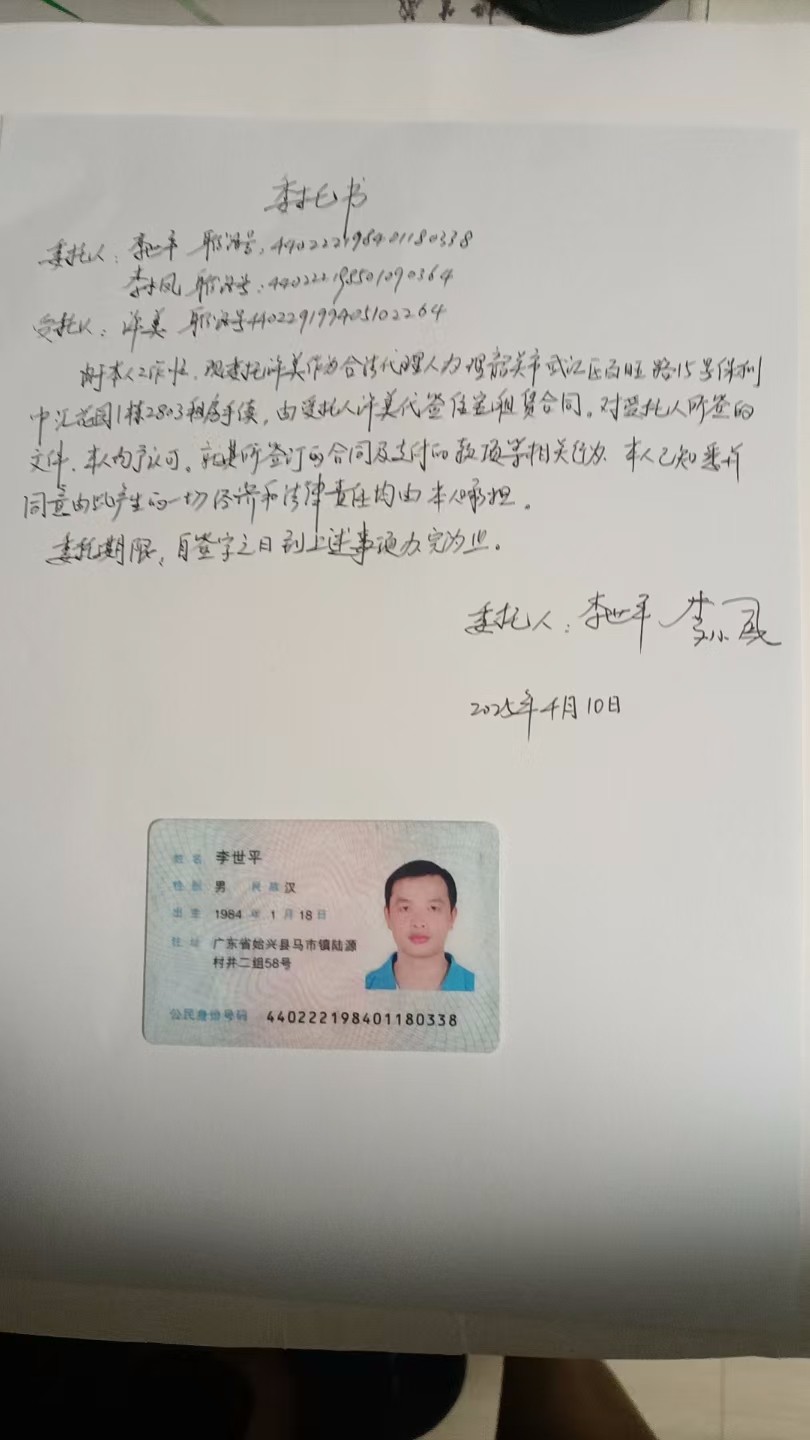 委托书
委托人：李世平 身份证号：440222198401180338
李小凤 身份证号：440222198501090364
受托人：许美 身份证号440229199405102264
由于本人工作忙，现委托许美作为合法代理人办理韶关市武江区百旺路15号保利
中汇花园1栋2803租房手续，由受托人许美代签住宅租赁合同。对受托人所签的
文件，本人均予认可。就其所签订的合同及支付的款项等相关行为，本人已知悉并
同意由此产生的一切经济和法律责任均由本人承担。
委托期限：自签字之日到上述事项办完为止。
委托人：李世平 李小凤
2025年4月10日
姓名 李世平
性别 男 民族 汉
出生 1984年1月18日
住址 广东省始兴县马市镇陆源
村井二组58号
公民身份号码 440222198401180338